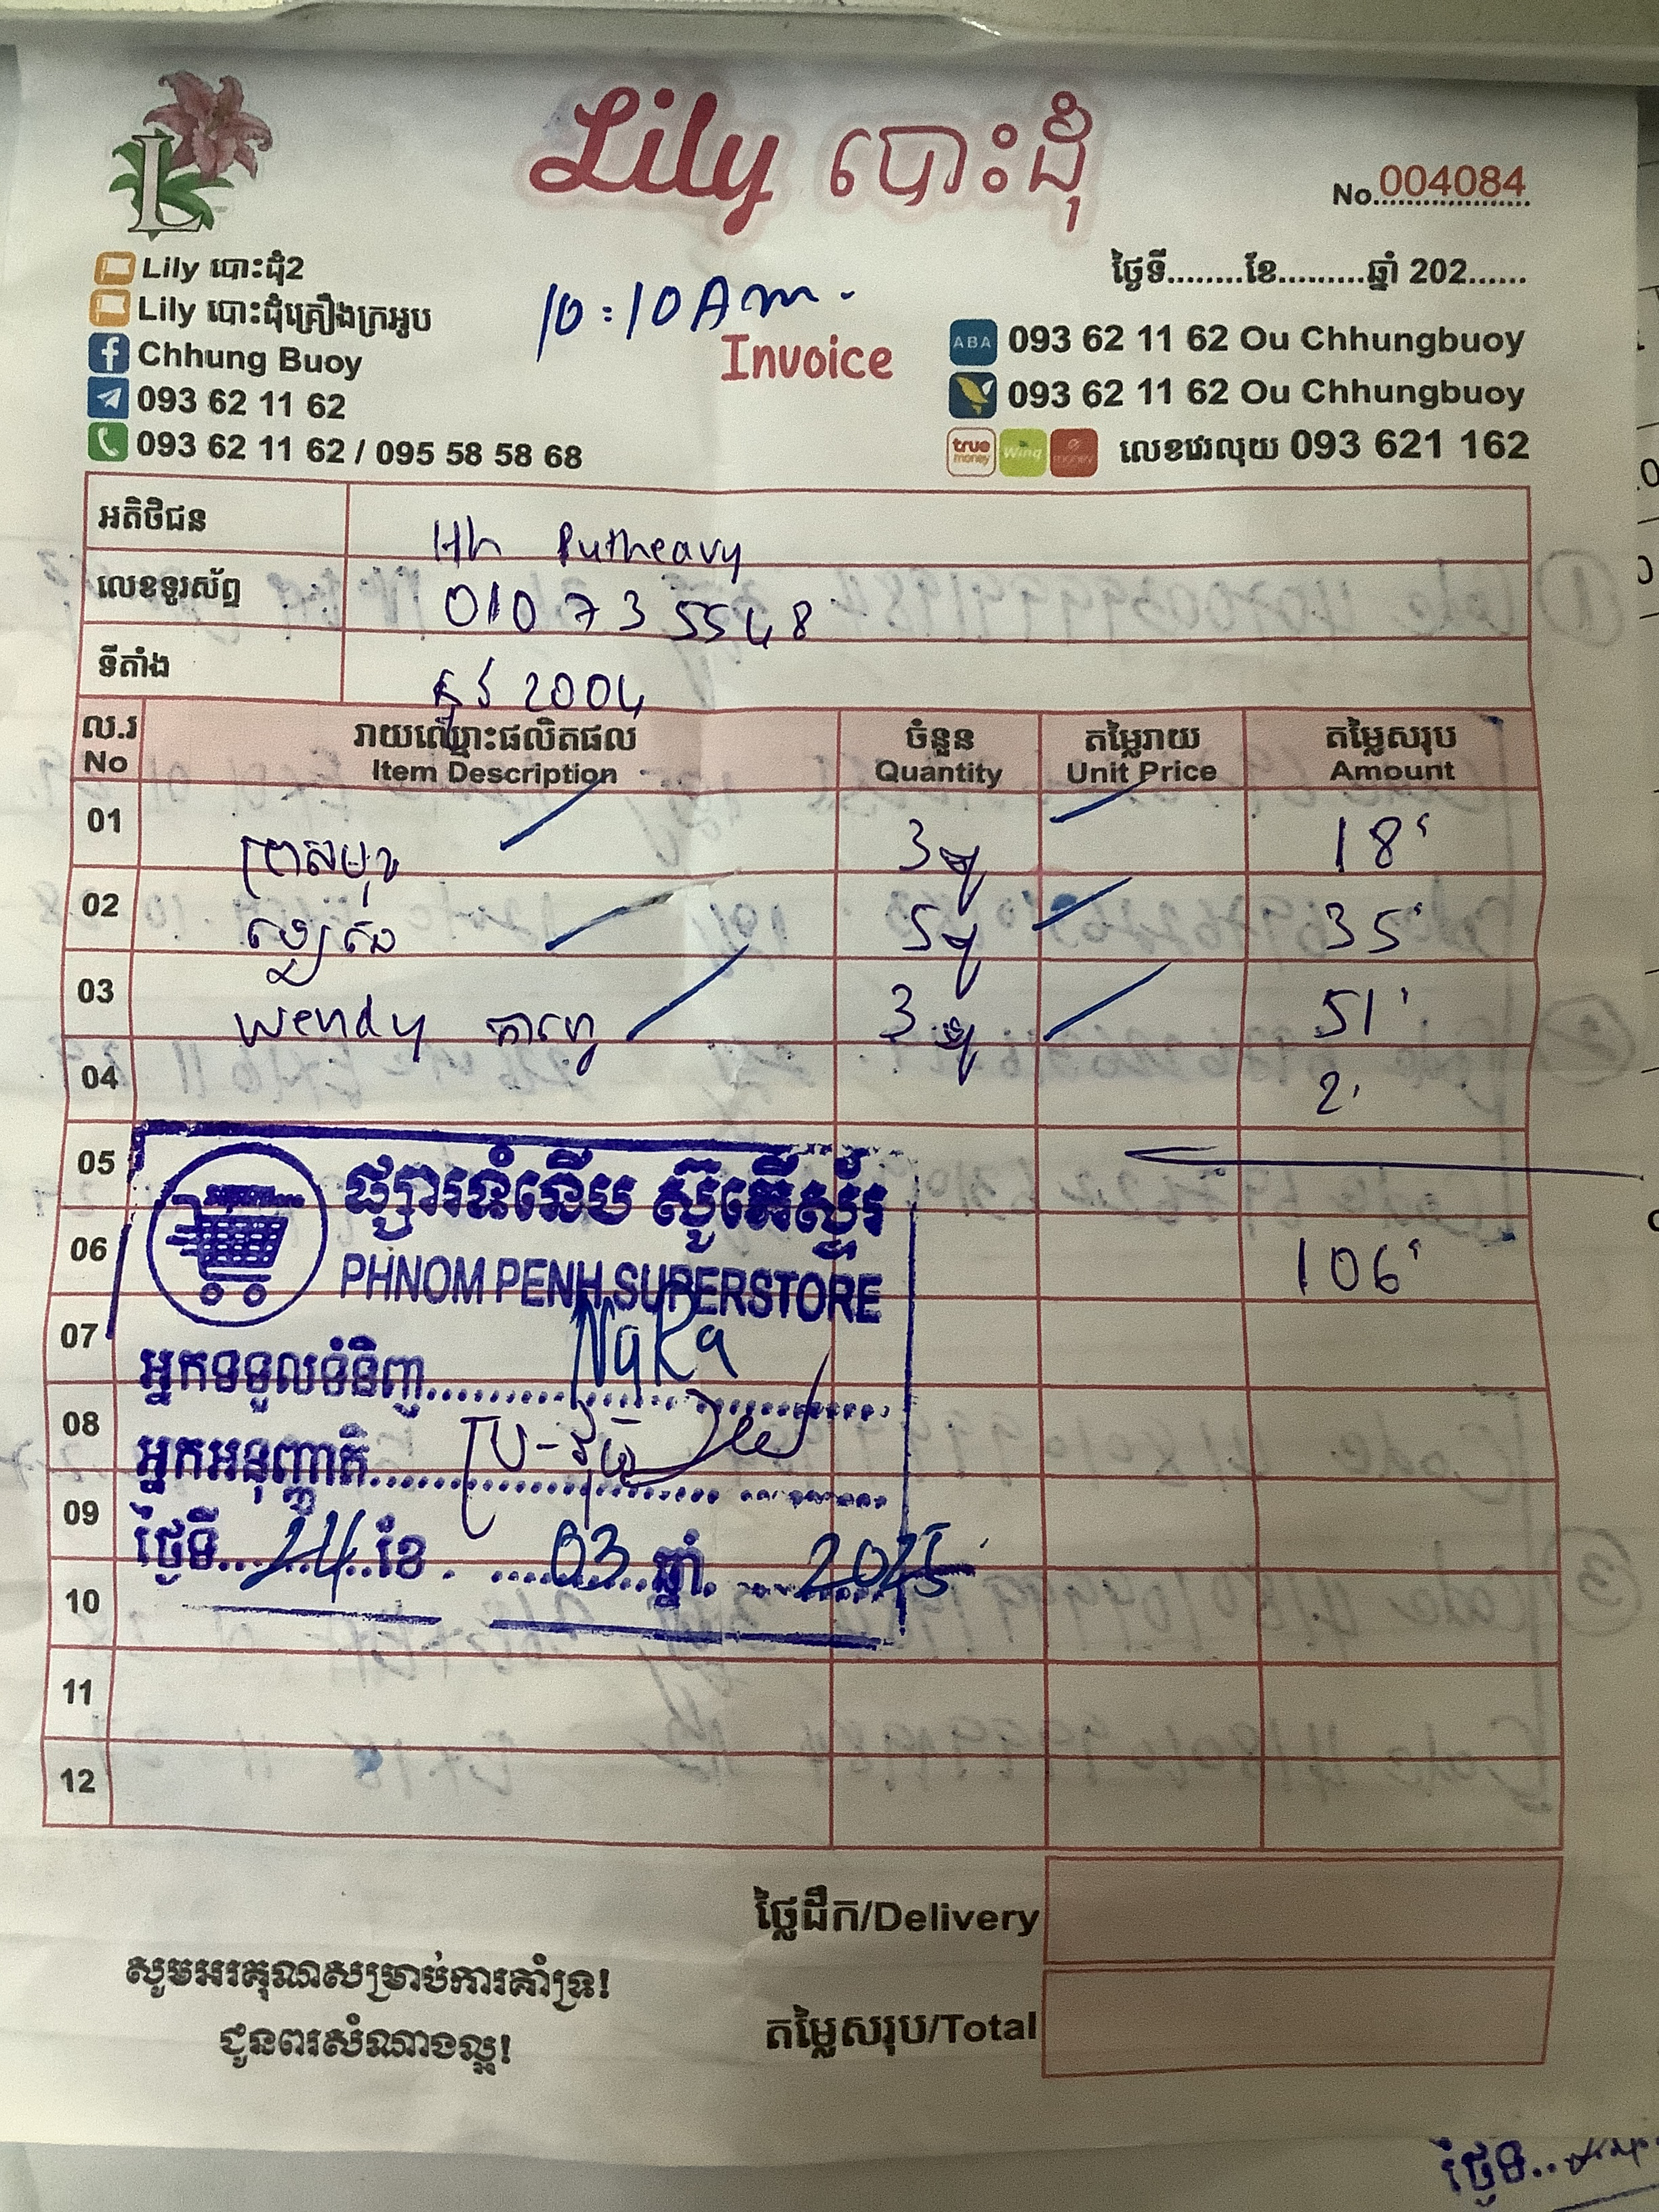 Lily បោះដុំ
No. 004084
Lily បោះដុំ2
Lily បោះដុំគ្រឿងក្រអូប
Chhung Buoy
093 62 11 62
093 62 11 62 / 095 58 58 68
10:10 Am.
Invoice
ថ្ងៃទី........ខែ.........ឆ្នាំ 202......
ABA 093 62 11 62 Ou Chhungbuoy
093 62 11 62 Ou Chhungbuoy
true money Wing លេខវេរលុយ 093 621 162
អតិថិជន Hh Putheavy
លេខទូរស័ព្ទ 010 73 5548
ទីតាំង 2004
ល.រ រាយឈ្មោះផលិតផល ចំនួន តម្លៃរាយ តម្លៃសរុប
No Item Description Quantity Unit Price Amount
01 3 18
02 5 35
03 Wendy 3 51
04 2
05
06 106
07
08
09
10
11
12
ផ្សារទំនើប ស៊ូភើស្ទ័រ
PHNOM PENH SUPERSTORE
អ្នកទទួលទំនិញ NaRa
អ្នកអនុញ្ញាតិ
ថ្ងៃទី 24 ខែ 03 ឆ្នាំ 2025
ថ្លៃដឹក/Delivery
តម្លៃសរុប/Total
សូមអរគុណសម្រាប់ការគាំទ្រ!
ជូនពរសំណាងល្អ!
ថ្ងៃទី..